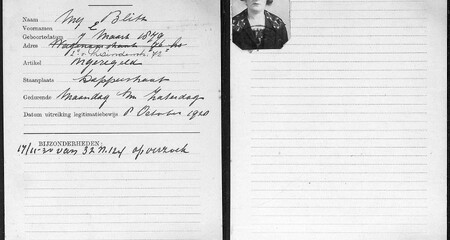 Naam Mej Blits
Voornamen E
Geboortedatum 7 Maart 1879
Adres Wagenaarstraat 96 ho
2e v. Swindenstr 42
Artikel ongeregeld
Staanplaats Dapperstraat
Gedurende Maandag t/m Zaterdag
Datum uitreiking legitimatiebewijs 8 October 1920
BIJZONDERHEDEN:
17/11-30 van 32 n. 124 op verzoek